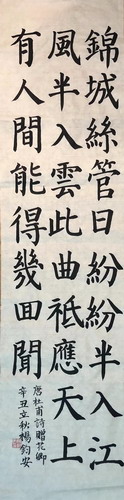 錦城絲管日紛紛半入江
風半入雲此曲祗應天上
有人間能得幾回聞
唐杜甫詩贈花卿
辛丑立秋楊鈞安